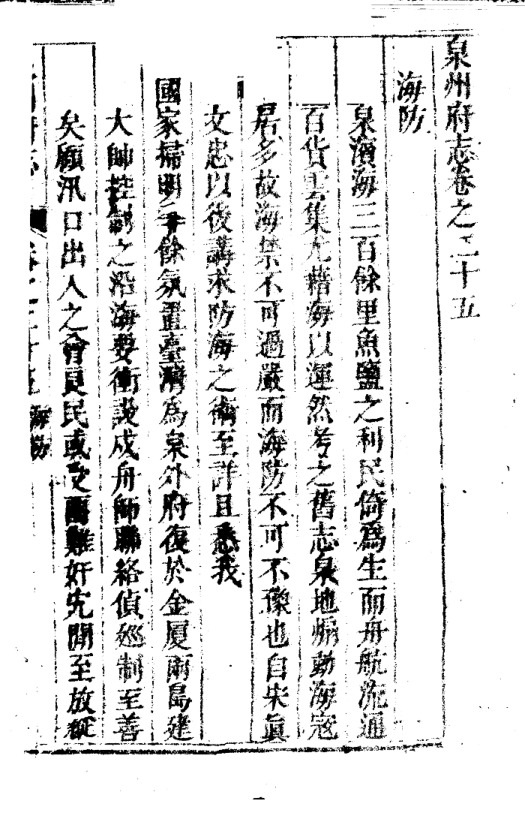 泉州府志卷之二十五
海防
泉濱海三百餘里魚鹽之利民倚爲生而舟航流通
百貨雲集尤藉海以運然考之舊志泉地煽動海寇
居多故海禁不可過嚴而海防不可不豫也自宋眞
文忠以後講求防海之術至詳且悉我
國家掃明季餘氛置臺灣為泉外府復於金厦兩島建
大帥控制之沿海要衝設戍舟師聯絡偵廵制至善
矣顧汛口出入之會良民或受留難奸宄間至放縱
府志 卷之二十五 海防
一